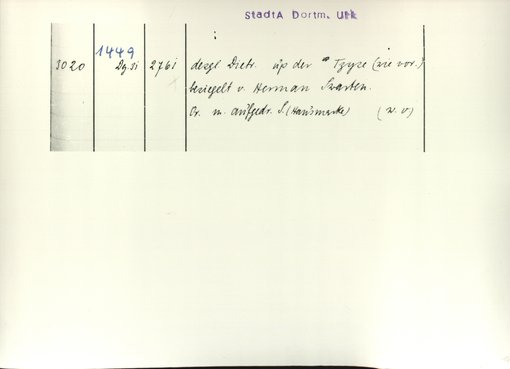 StadtA Dortm. Urk
1449
3020 Dg. si 2761 desgl Dietr. up der Tzyse (wie vor.)
besiegelt v. Herman Swarten.
Or. m. aufgedr. S. (Hausmarke) (w. v)